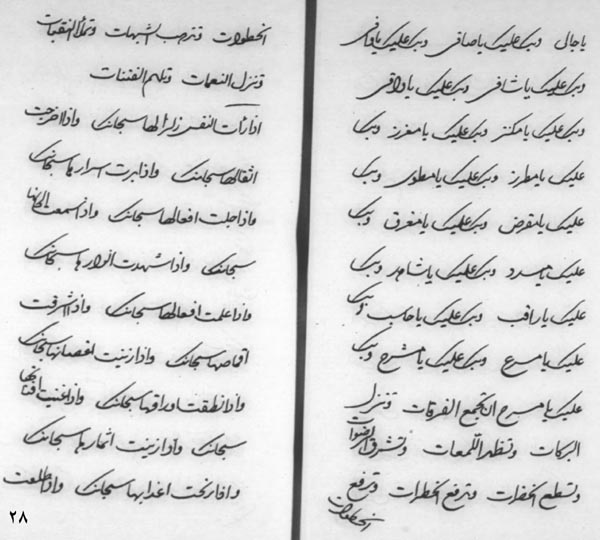 یا جال وبک علیک یا صافی وبک علیک یا وافی
وبک علیک یا شافی وبک علیک یا دلاقی
وبک علیک یا مکنز وبک علیک یا مغرز وبک
علیک یا مطرز وبک علیک یا مطوی وبک
علیک یا مقرض وبک علیک یا مغرق وبک
علیک یا مسرد وبک علیک یا شاهد وبک
علیک یا راقب وبک علیک یا حاسب وبک
علیک یا مسرع وبک علیک یا مشرح وبک
علیک یا مسرح ان تجمع الفرقات وتنزل
البرکات وتظهر اللمعات وتشرق
وتسطع وترفع الخطرات وترفع
الخطوات
الخطوات وترصب الشبهات وتملأ النقبات
وتنزل النعمات وتلهم الفتنات
اذا رأت النفس زلزالها سبحانک واذا اخرجت
اثقالها سبحانک واذا ابرت اسرارها سبحانک
واذا جلت افعالها سبحانک واذا سمعت
سبحانک واذا شهدت انوارها سبحانک
واذا علمت افعالها سبحانک واذا اشرقت
اقماصها سبحانک واذا زینت اغصانها سبحانک
واذا نطقت اوراقها سبحانک واذا
سبحانک واذا زینت اثمارها سبحانک
سبحانک واذا طلعت
٢٨